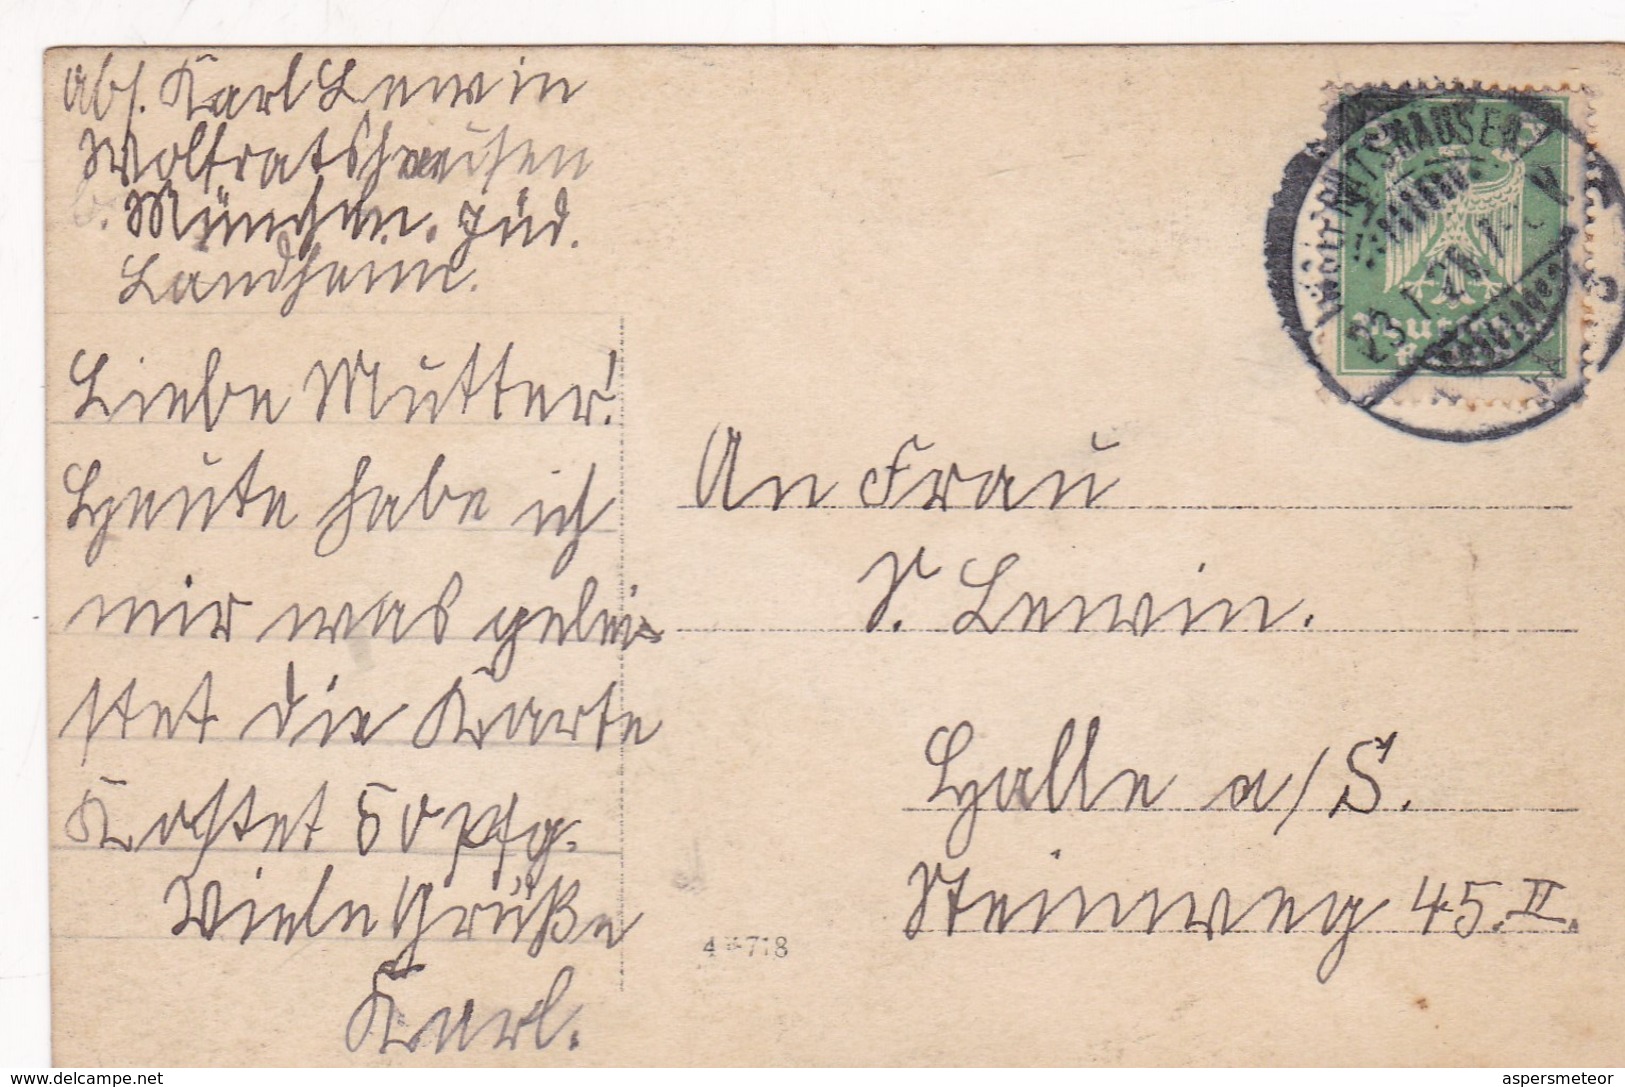 Abs. Karl Lewin
Wolfratshausen
b. München. Jüd.
Landheim.
Liebe Mutter!
Heute habe ich
mir was gelei-
stet die Karte
Kostet 50 Pfg.
Viele Grüße
Karl.
WOLFRATSHAUSEN
23.1.26
An Frau
S. Lewin.
Halle a/S.
Steinweg 45.II.
718
www.delcampe.net
aspersmeteor